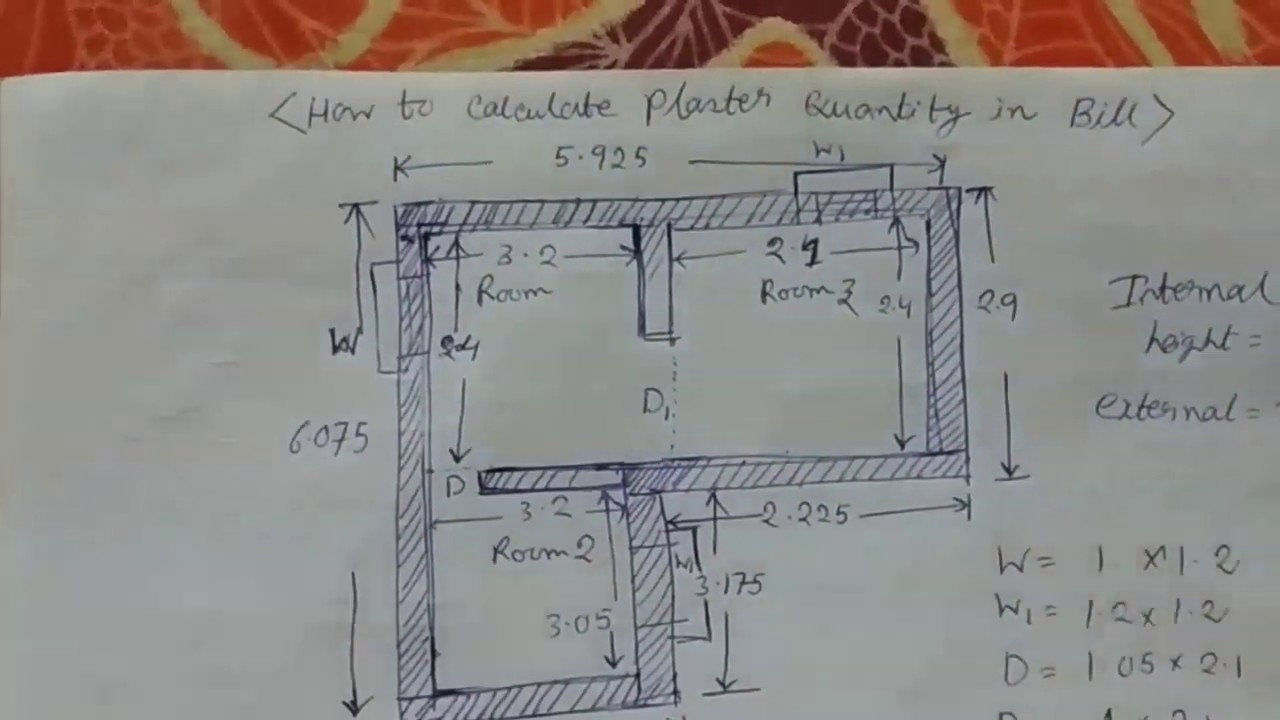 <How to Calculate Plaster Quantity in Bill>
5.925
W1
3.2
Room
2.4
2.9
Internal
height =
W
6.075
D1
external =
D
3.2
2.225
Room 2
W1
3.175
3.05
W = 1 × 1.2
W1 = 1.2 × 1.2
D = 1.05 × 2.1